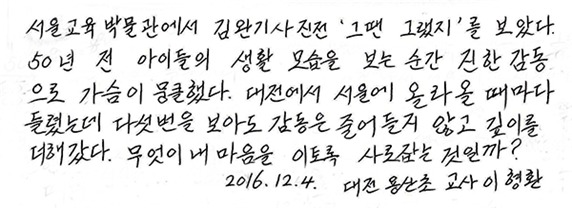 서울교육박물관에서 김완기사진전 '그땐 그랬지'를 보았다.
50년 전 아이들의 생활 모습을 보는 순간 진한 감동
으로 가슴이 뭉클했다. 대전에서 서울에 올라올 때마다
들렸는데 다섯번을 보아도 감동은 줄어들지 않고 깊이를
더해갔다. 무엇이 내 마음을 이토록 사로잡는 것일까?
2016.12.4. 대전 용산초 교사 이형환